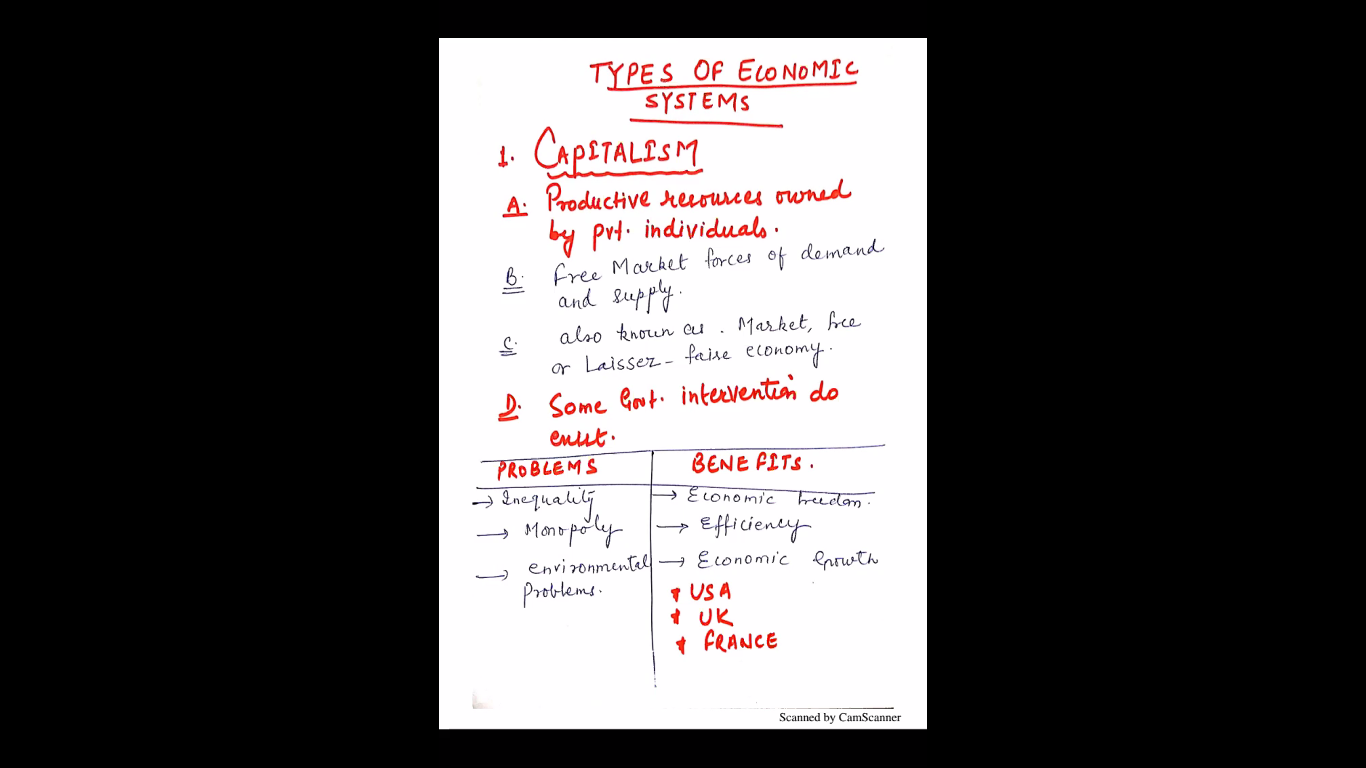 TYPES OF ECONOMIC
SYSTEMS
1. CAPITALISM
A. Productive resources owned
by pvt. individuals.
B. Free Market forces of demand
and supply.
C. also known as . Market, free
or Laissez-faise economy.
D. Some Govt. intervention do
exist.
PROBLEMS BENEFITS.
→ Inequality → Economic freedom.
→ Monopoly → Efficiency
→ environmental → Economic Growth
Problems.
* USA
* UK
* FRANCE
Scanned by CamScanner